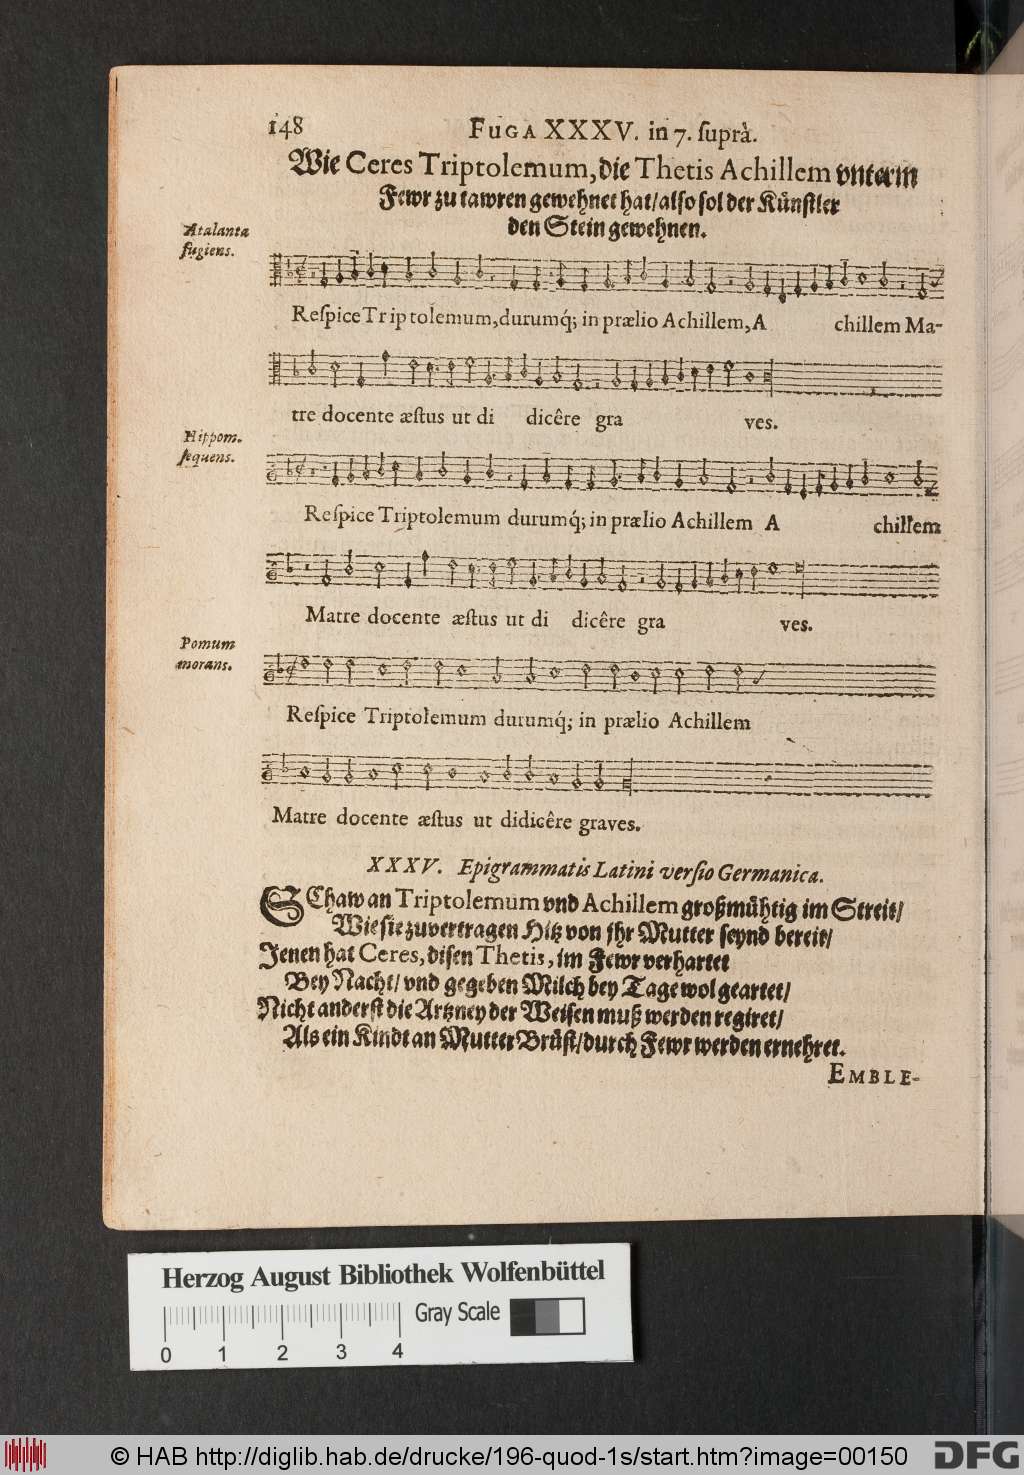 148
FUGA XXXV. in 7. suprà.
Wie Ceres Triptolemum, die Thetis Achillem vnterm
Fewr zu tawren gewehnet hat/ also sol der Künstler
den Stein gewehnen.
Atalanta
fugiens.
Reſpice Triptolemum, durumq́; in prælio Achillem, A chillem Ma-
tre docente æſtus ut di dicêre gra ves.
Hippom.
ſequens.
Reſpice Triptolemum durumq́; in prælio Achillem A chillem
Matre docente æſtus ut di dicêre gra ves.
Pomum
morans.
Reſpice Triptolemum durumq́; in prælio Achillem
Matre docente æſtus ut didicêre graves.
XXXV. Epigrammatis Latini verſio Germanica.
SChaw an Triptolemum vnd Achillem großmühtig im Streit/
Wie ſie zuvertragen Hitz von jhr Mutter ſeynd bereit/
Jenen hat Ceres, diſen Thetis, im Fewr verhartet
Bey Nacht/ vnd gegeben Milch bey Tage wol geartet/
Nicht anderſt die Artzney der Weiſen muß werden regiret/
Als ein Kindt an Mutter Brüſt/ durch Fewr werden ernehret.
EMBLE-
Herzog August Bibliothek Wolfenbüttel
Gray Scale
0 1 2 3 4
© HAB http://diglib.hab.de/drucke/196-quod-1s/start.htm?image=00150
DFG